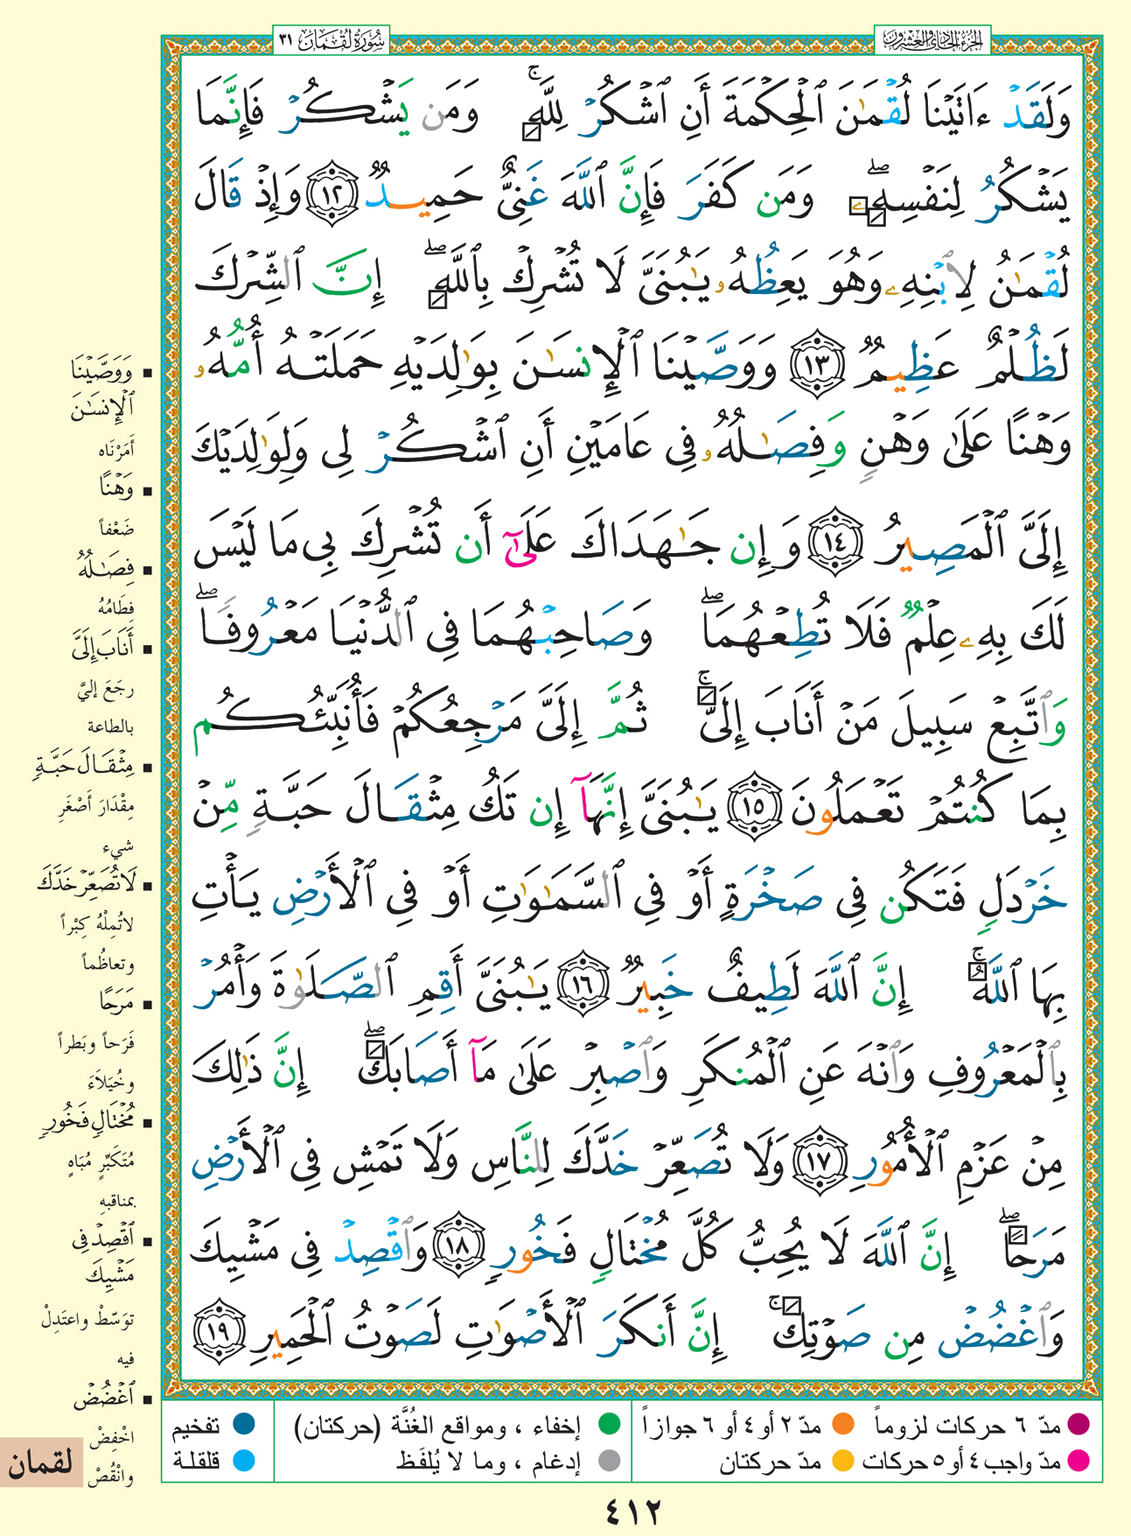 الجزء الحادي والعشرون
سورة لقمان ٣١
وَلَقَدْ ءَاتَيْنَا لُقْمَٰنَ ٱلْحِكْمَةَ أَنِ ٱشْكُرْ لِلَّهِۚ وَمَن يَشْكُرْ فَإِنَّمَا
يَشْكُرُ لِنَفْسِهِۦۖ وَمَن كَفَرَ فَإِنَّ ٱللَّهَ غَنِىٌّ حَمِيدٌ ١٢ وَإِذْ قَالَ
لُقْمَٰنُ لِٱبْنِهِۦ وَهُوَ يَعِظُهُۥ يَٰبُنَىَّ لَا تُشْرِكْ بِٱللَّهِۖ إِنَّ ٱلشِّرْكَ
لَظُلْمٌ عَظِيمٌ ١٣ وَوَصَّيْنَا ٱلْإِنسَٰنَ بِوَٰلِدَيْهِ حَمَلَتْهُ أُمُّهُۥ
وَهْنًا عَلَىٰ وَهْنٍ وَفِصَٰلُهُۥ فِى عَامَيْنِ أَنِ ٱشْكُرْ لِى وَلِوَٰلِدَيْكَ
إِلَىَّ ٱلْمَصِيرُ ١٤ وَإِن جَٰهَدَاكَ عَلَىٰٓ أَن تُشْرِكَ بِى مَا لَيْسَ
لَكَ بِهِۦ عِلْمٌ فَلَا تُطِعْهُمَاۖ وَصَاحِبْهُمَا فِى ٱلدُّنْيَا مَعْرُوفًاۖ
وَٱتَّبِعْ سَبِيلَ مَنْ أَنَابَ إِلَىَّۚ ثُمَّ إِلَىَّ مَرْجِعُكُمْ فَأُنَبِّئُكُم
بِمَا كُنتُمْ تَعْمَلُونَ ١٥ يَٰبُنَىَّ إِنَّهَآ إِن تَكُ مِثْقَالَ حَبَّةٍ مِّنْ
خَرْدَلٍ فَتَكُن فِى صَخْرَةٍ أَوْ فِى ٱلسَّمَٰوَٰتِ أَوْ فِى ٱلْأَرْضِ يَأْتِ
بِهَا ٱللَّهُۚ إِنَّ ٱللَّهَ لَطِيفٌ خَبِيرٌ ١٦ يَٰبُنَىَّ أَقِمِ ٱلصَّلَوٰةَ وَأْمُرْ
بِٱلْمَعْرُوفِ وَٱنْهَ عَنِ ٱلْمُنكَرِ وَٱصْبِرْ عَلَىٰ مَآ أَصَابَكَۖ إِنَّ ذَٰلِكَ
مِنْ عَزْمِ ٱلْأُمُورِ ١٧ وَلَا تُصَعِّرْ خَدَّكَ لِلنَّاسِ وَلَا تَمْشِ فِى ٱلْأَرْضِ
مَرَحًاۖ إِنَّ ٱللَّهَ لَا يُحِبُّ كُلَّ مُخْتَالٍ فَخُورٍ ١٨ وَٱقْصِدْ فِى مَشْيِكَ
وَٱغْضُضْ مِن صَوْتِكَۚ إِنَّ أَنكَرَ ٱلْأَصْوَٰتِ لَصَوْتُ ٱلْحَمِيرِ ١٩
■ وَوَصَّيْنَا
ٱلْإِنسَٰنَ
أَمَرْنَاه
■ وَهْنًا
ضَعْفاً
■ فِصَٰلُهُ
فِطَامُهُ
■ أَنَابَ إِلَىَّ
رجَعَ إليَّ
بالطاعة
■ مِثْقَالَ حَبَّةٍ
مِقْدَارَ أَصْغَرِ
شيء
■ لَا تُصَعِّرْ خَدَّكَ
لاتُمِلْهُ كِبْراً
وتعاظُماً
■ مَرَحًا
فَرَحاً وبَطراً
وخُيَلاءَ
■ مُخْتَالٍ فَخُورٍ
مُتَكَبِّرٍ مُبَاهٍ
بمناقبهِ
■ ٱقْصِدْ فِى
مَشْيِكَ
توَسّطْ واعتَدِلْ
فيه
■ ٱغْضُضْ
اخْفِضْ
وانْقُصْ
لقمان
مدّ ٦ حركات لزوماً
مدّ ٢ أو ٤ أو ٦ جوازاً
إخفاء ، ومواقع الغُنَّة (حركتان)
تفخيم
مدّ واجب ٤ أو ٥ حركات
مدّ حركتان
إدغام ، وما لا يُلفَظ
قلقلة
٤١٢